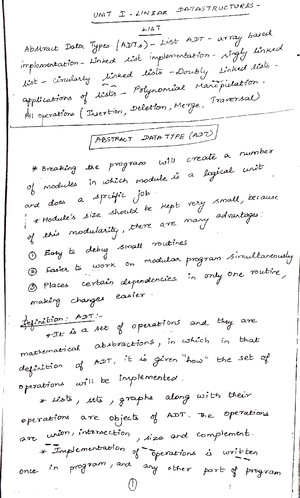 UNIT I - LINEAR DATASTRUCTURES -
LIST
Abstract Data Types (ADTs) - List ADT - array based
implementation - Linked list implementation - singly linked
list - Circularly linked lists - Doubly Linked lists -
applications of lists - Polynomial Manipulation.
All operations (Insertion, Deletion, Merge, Traversal)
ABSTRACT DATA TYPE (ADT)
* Breaking the program will create a number
of modules in which module is a logical unit
and does a specific job.
* Module's size should be kept very small, because
of this modularity, there are many advantages:
① Easy to debug small routines
② Easier to work on modular program simultaneously
③ Places certain dependencies in only one routine,
making changes easier.
Definition: ADT:-
* It is a set of operations and they are
mathematical abstractions, in which in that
definition of ADT, it is given "how" the set of
operations will be implemented.
* Lists, sets, graphs along with their
operations are objects of ADT. The operations
are union, intersection, size and complement.
* Implementation of operations is written
once in program, and any other part of program
①